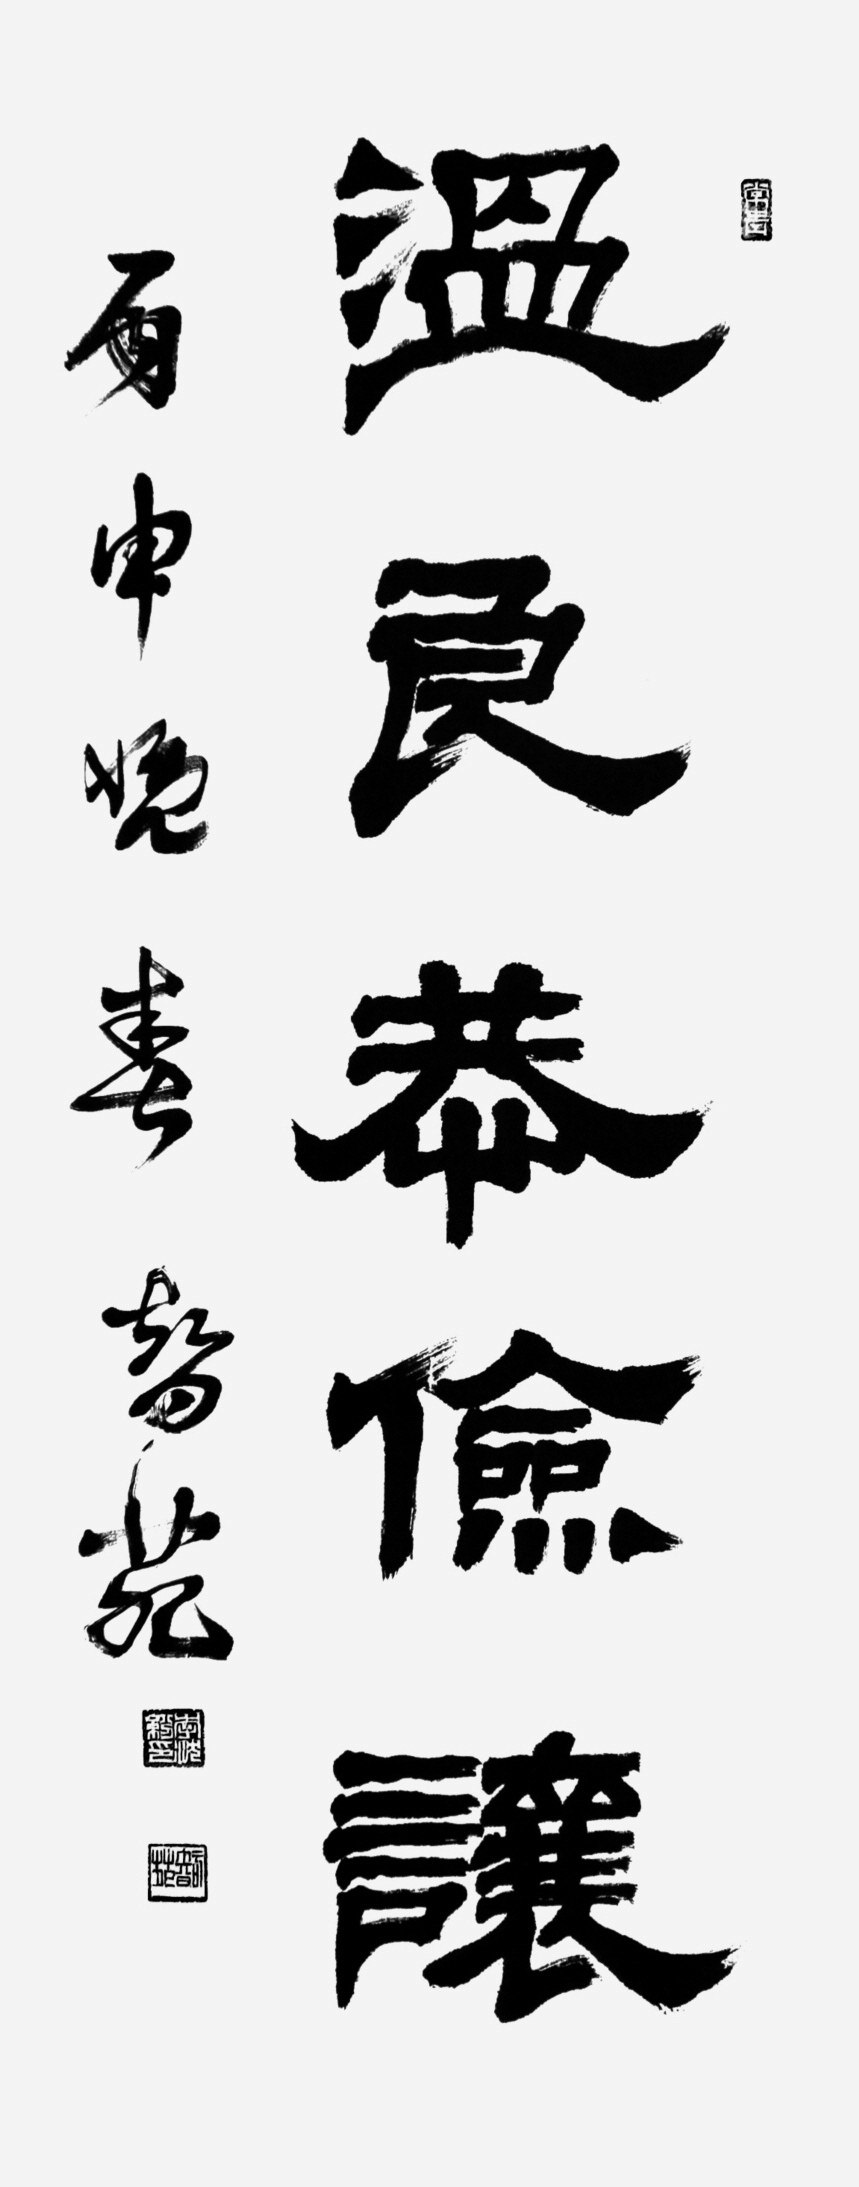 溫良恭儉讓
丙申晚春 智苑